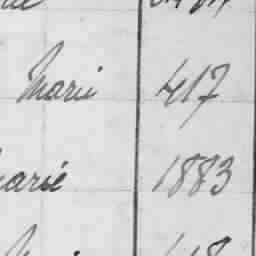 Marie 417
arie 1883